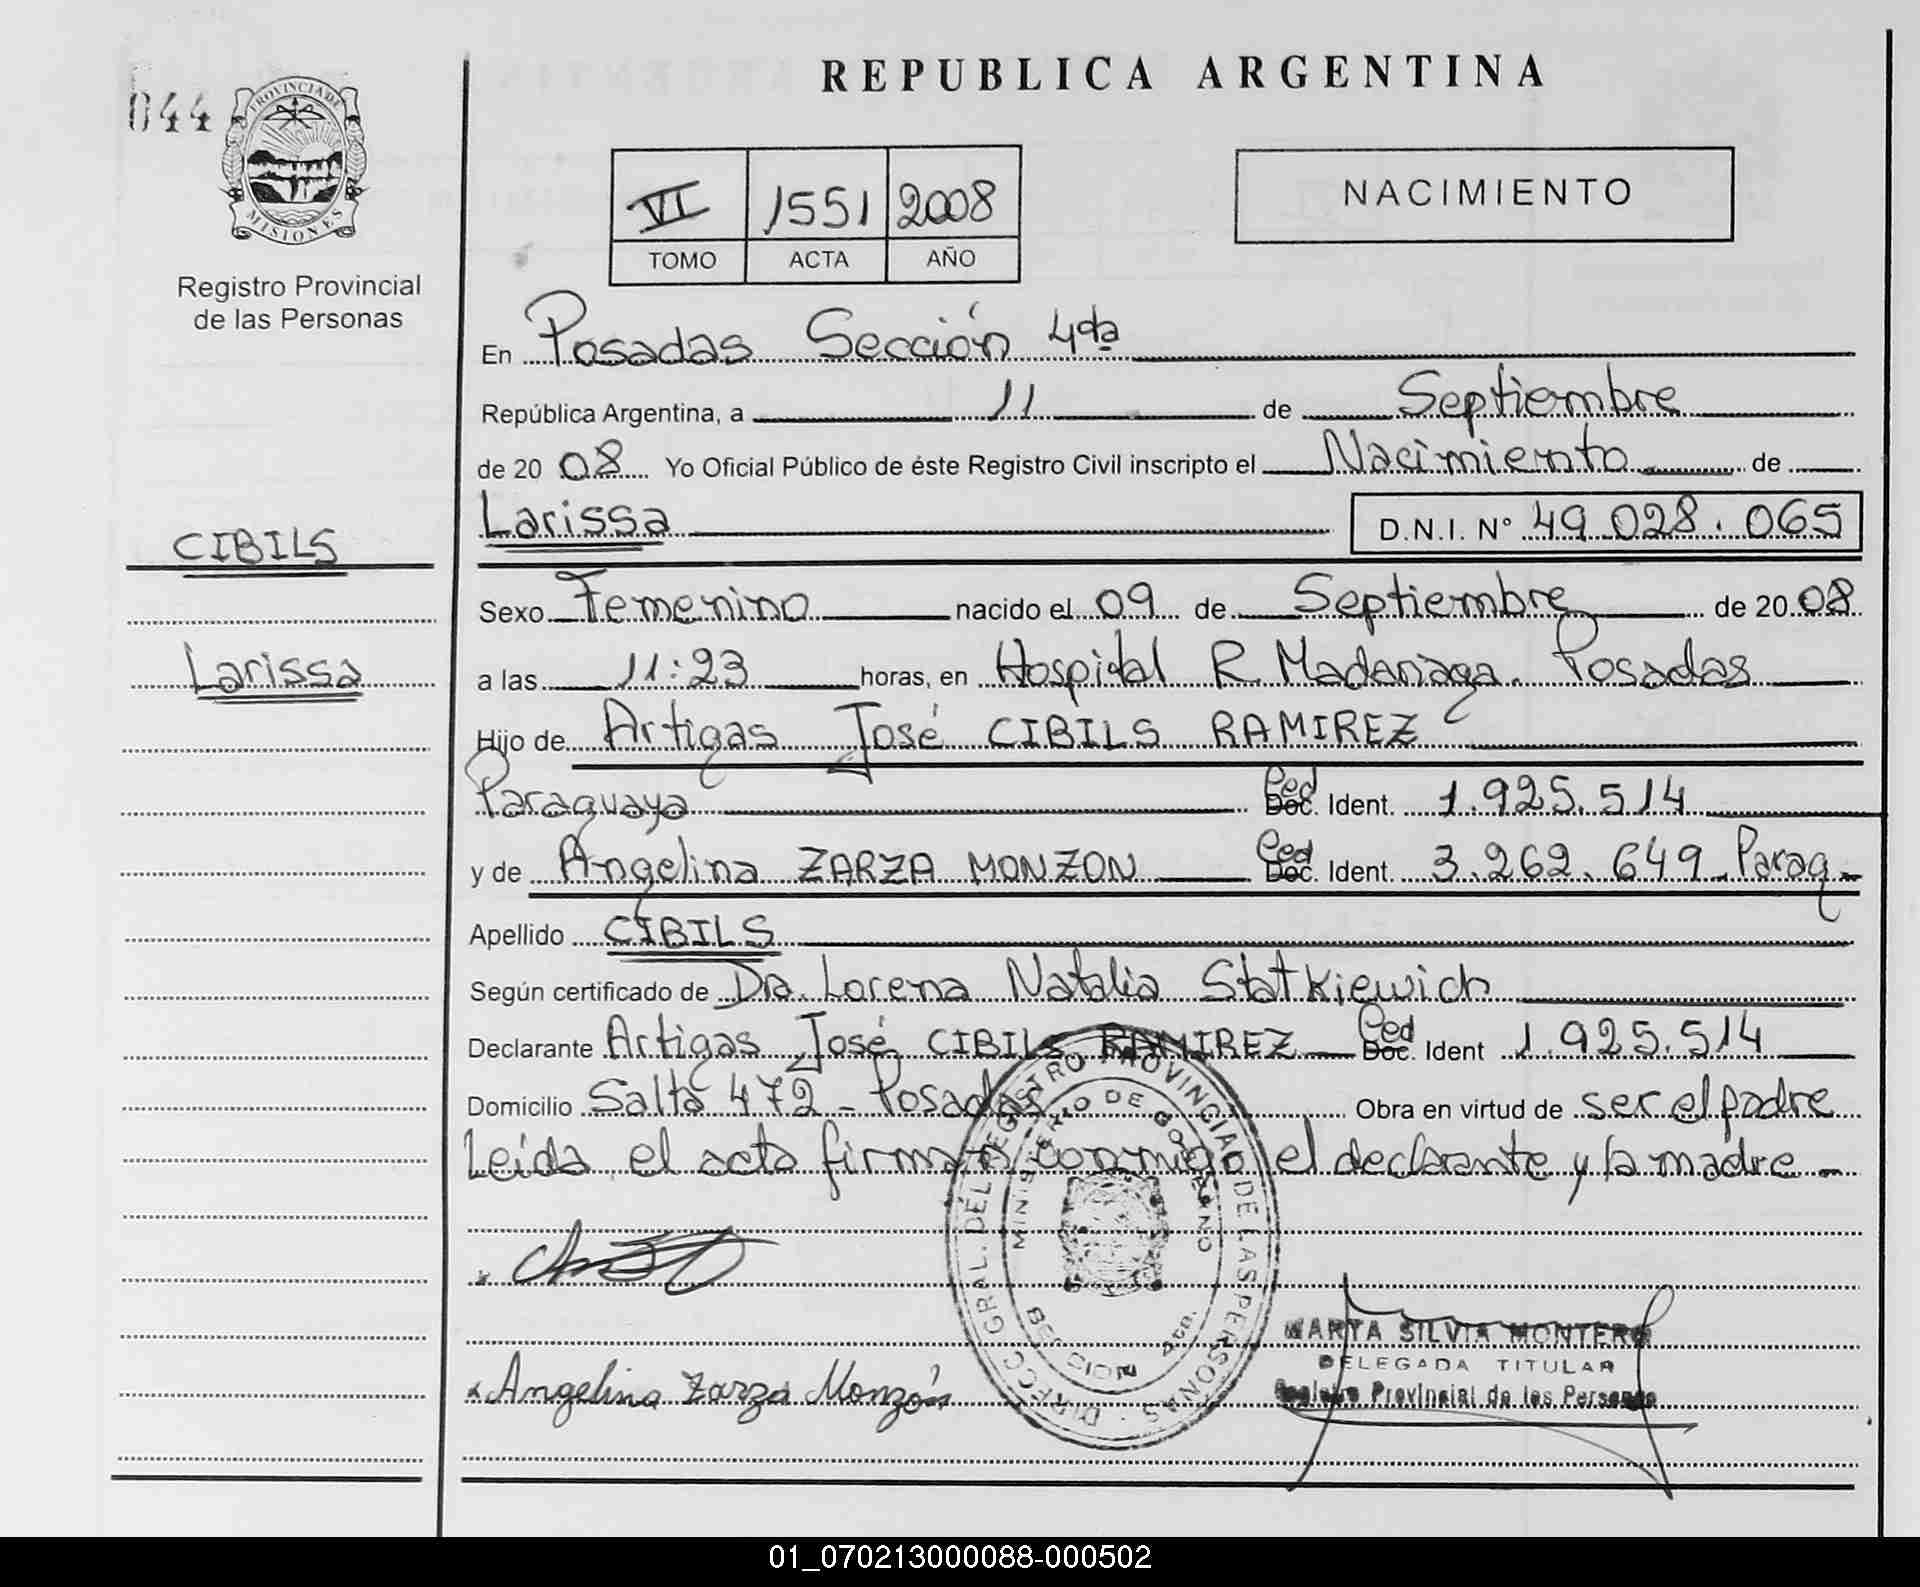 044
PROVINCIA DE
MISIONES
Registro Provincial
de las Personas
CIBILS
Larissa
REPUBLICA ARGENTINA
VI 1551 2008
TOMO ACTA AÑO
NACIMIENTO
En Posadas Sección 4ta
República Argentina, a 11 de Septiembre
de 20 08 Yo Oficial Público de éste Registro Civil inscripto el Nacimiento de
Larissa D.N.I. N° 49.028.065
Sexo Femenino nacido el 09 de Septiembre de 20 08
a las 11:23 horas, en Hospital R. Madariaga. Posadas
Hijo de Artigas José CIBILS RAMIREZ
Paraguaya Ced Doc. Ident. 1.925.514
y de Angelina ZARZA MONZON Ced Doc. Ident. 3.262.649 Parag
Apellido CIBILS
Según certificado de Dra. Lorena Natalia Statkiewich
Declarante Artigas José CIBILS RAMIREZ Ced Doc. Ident 1.925.514
Domicilio Salta 472 - Posadas Obra en virtud de ser el padre
Leída el acta firman conmigo el declarante y la madre -
DIRECC. GRAL. DEL REGISTRO PROVINCIAL DE LAS PERSONAS
MINISTERIO DE GOBIERNO
Angelina Zarza Monzón
MARTA SILVIA MONTERO
DELEGADA TITULAR
Registro Provincial de las Personas
01_070213000088-000502